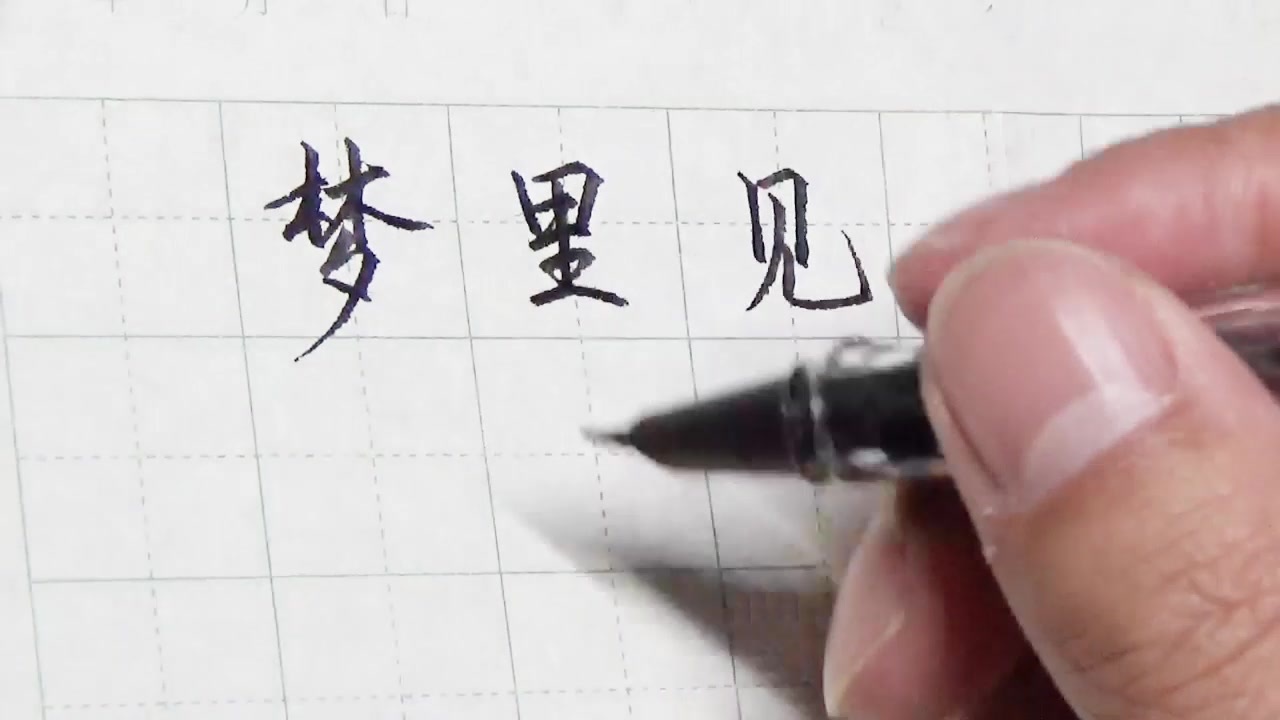 梦里见